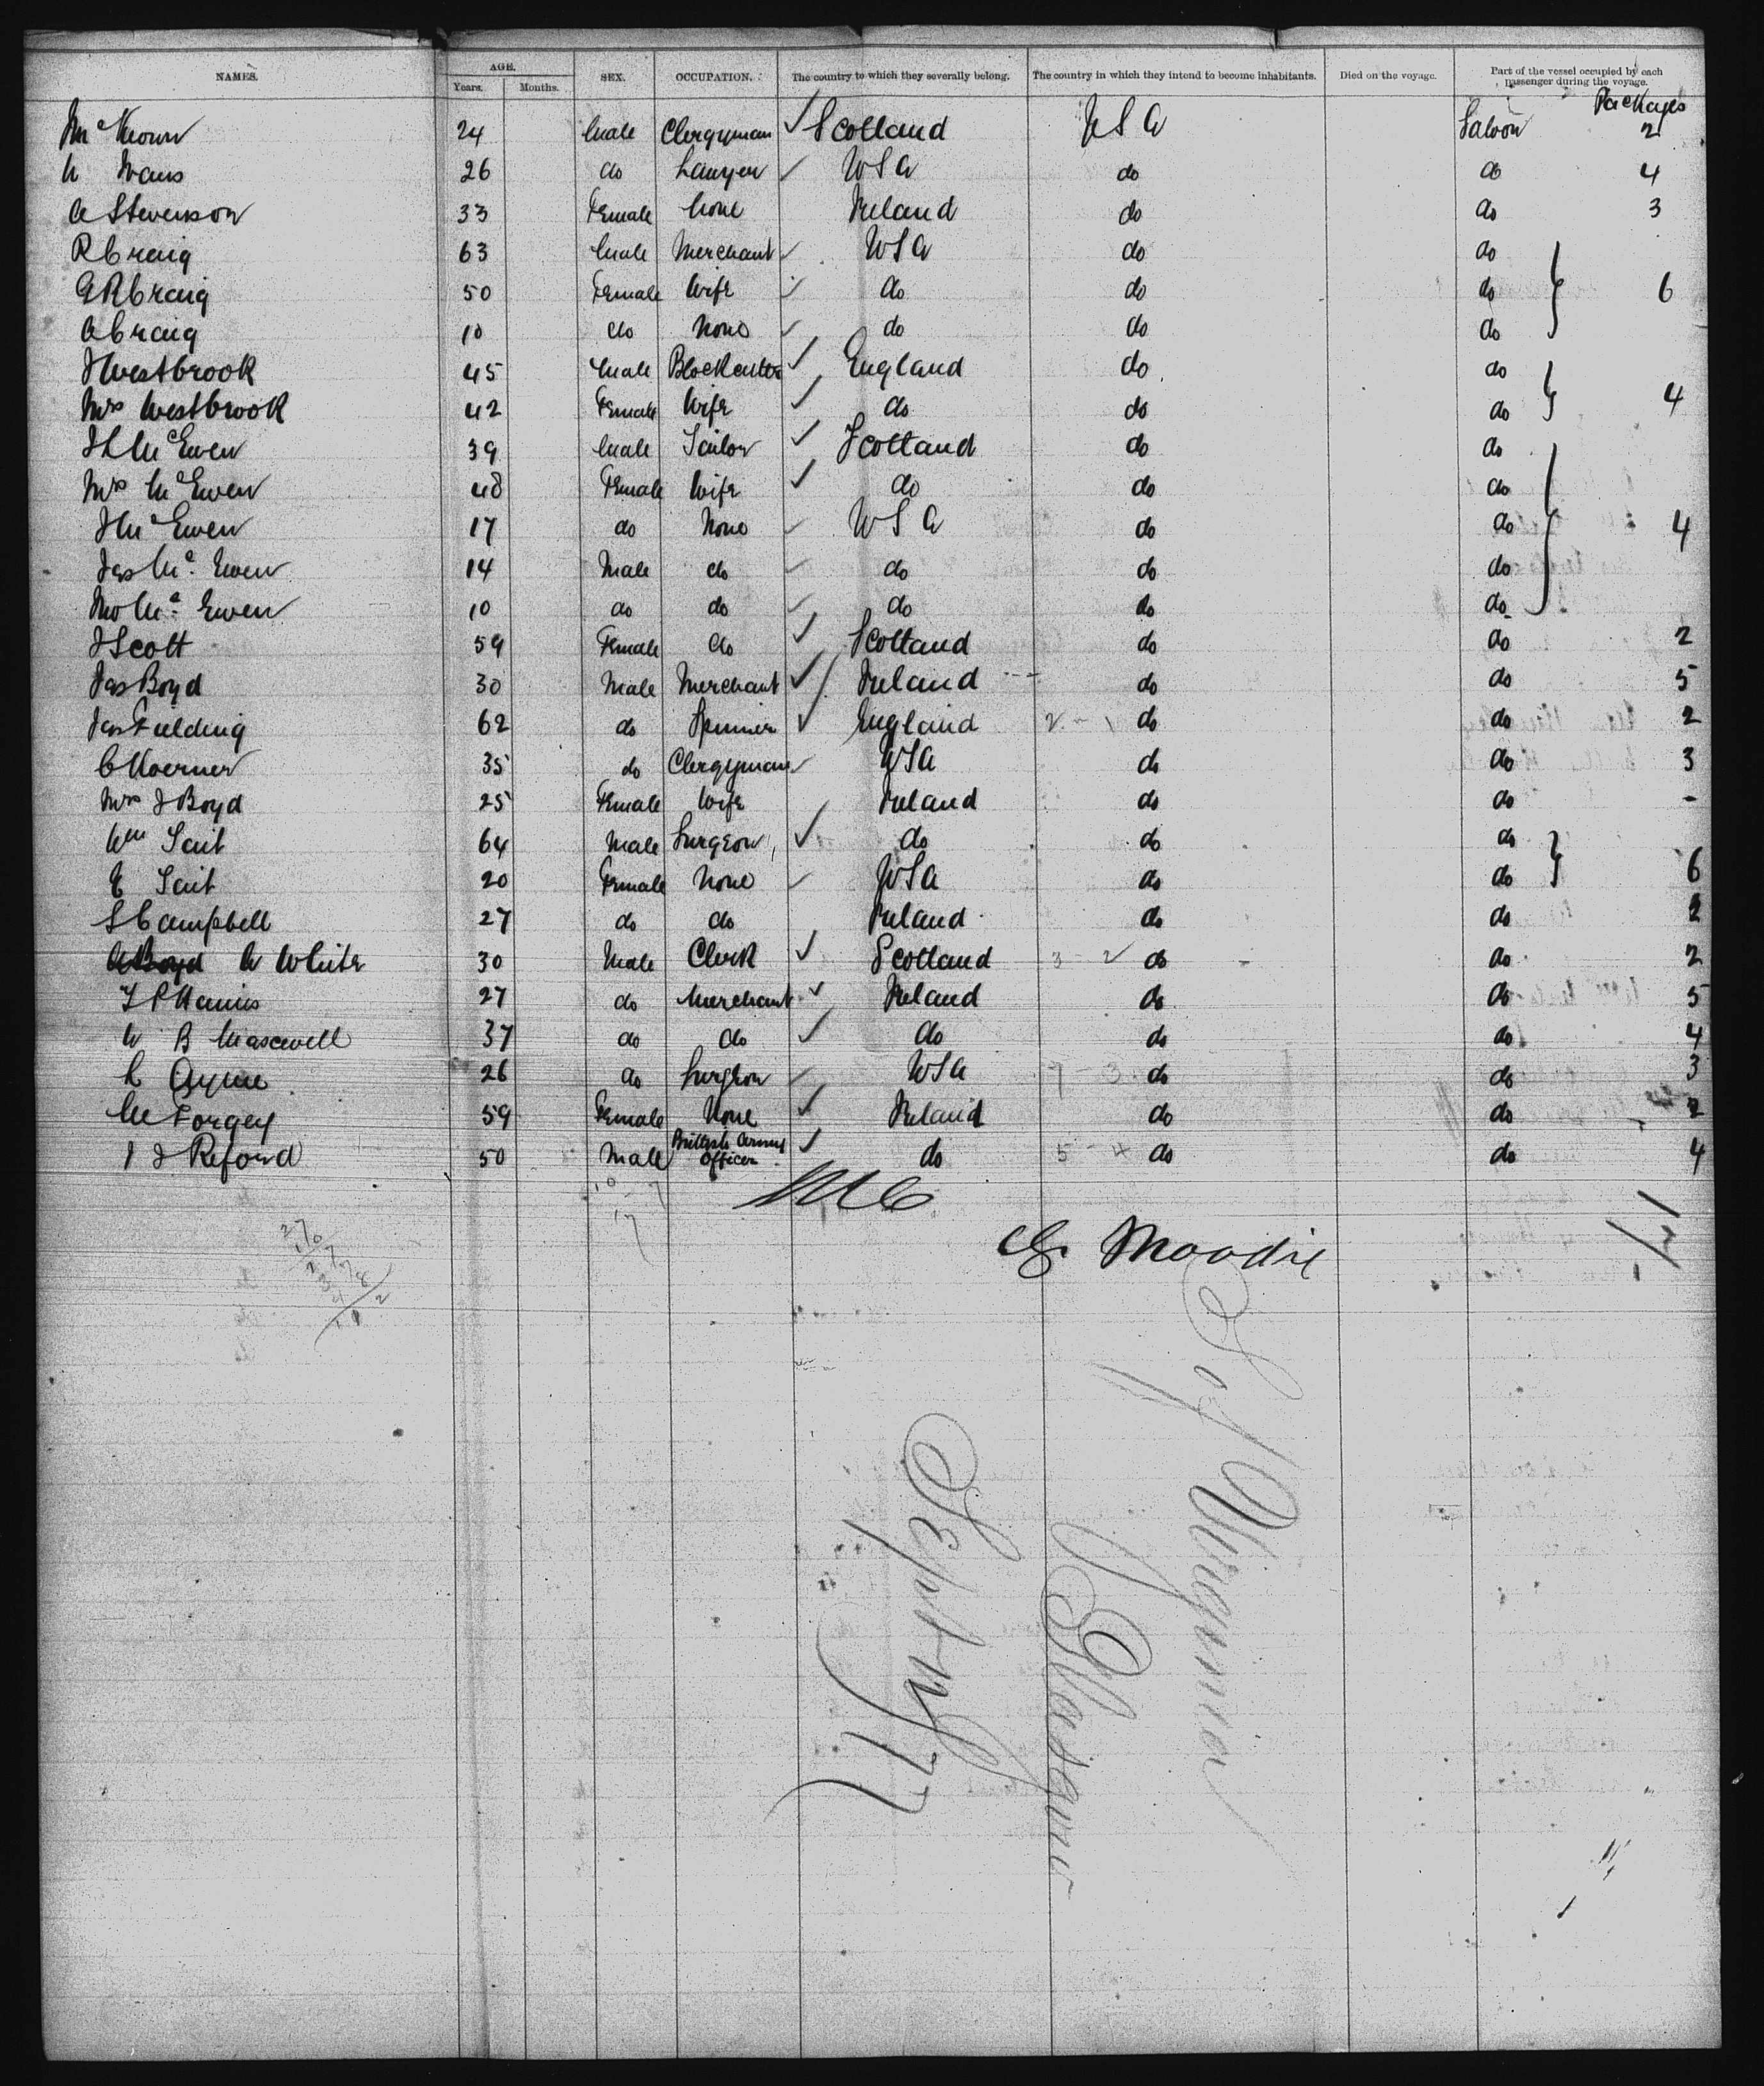 NAMES. AGE. Years. Months. SEX. OCCUPATION. The country to which they severally belong. The country in which they intend to become inhabitants. Died on the voyage. Part of the vessel occupied by each passenger during the voyage.
Packages
McKeown 24 Male Clergyman ✓ Scotland USA Saloon 2
26 do Lawyer ✓ USA do do 4
A Stevenson 33 Female None Ireland do do 3
R Craig 63 Male Merchant ✓ USA do do
E R Craig 50 Female Wife ✓ do do do 6
A Craig 10 do None ✓ do do do
J Westbrook 45 Male Blockcutter ✓ England do do
Mrs Westbrook 42 Female Wife ✓ do do do 4
McEwen 39 Male Tailor ✓ Scotland do do
Mrs McEwen 48 Female Wife ✓ do do do
J McEwen 17 do None ✓ USA do do 4
Jas Mc. Ewen 14 Male do ✓ do do do
Jno Mc. Ewen 10 do do ✓ do do do
J Scott 59 Female do ✓ Scotland do do 2
Jas Boyd 30 Male Merchant ✓ Ireland do do 5
Jas Fielding 62 do Spinner ✓ England 2 - 1 do do 2
C Koerner 35 do Clergyman ✓ USA do do 3
Mrs J Boyd 25 Female Wife Ireland do do -
Wm Tait 64 Male Surgeon ✓ do do do
E Tait 20 Female None ✓ USA do do 6
S Campbell 27 do do Ireland do do 2
A Boyd W White 30 Male Clerk ✓ Scotland 3 - 2 do do 2
27 do Merchant ✓ Ireland do do 5
W B Maxwell 37 do do ✓ do do do 4
26 do Surgeon ✓ USA 7 - 3 do do 3
M Forgey 59 Female None ✓ Ireland do do 2
J J Reford 50 Male British Army Officer ✓ do 5 - 4 do do 4
10 - 7
17
G. Moodie
S of Virginia
Glasgow
Sept 17